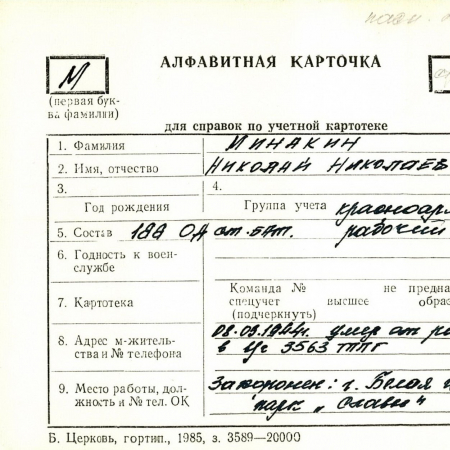 АЛФАВИТНАЯ КАРТОЧКА
М
(первая бук-
ва фамилии)
для справок по учетной картотеке
1. Фамилия МИНАКИН
2. Имя, отчество НИКОЛАЙ НИКОЛАЕВ
3. 4.
Год рождения Группа учета красноар
5. Состав 188 ОД от.бат. рабочий
6. Годность к воен-
службе
Команда № не предна
7. Картотека спецучет высшее образ
(подчеркнуть)
8. Адрес м-житель- 08.03.1944г. умер от ра
ства и № телефона в ЧГ 3563 ТППГ
9. Место работы, дол- Захоронен: г. Белая
жность и № тел. ОК парк „Славы"
Б. Церковь, гортип., 1985, з. 3589—20000